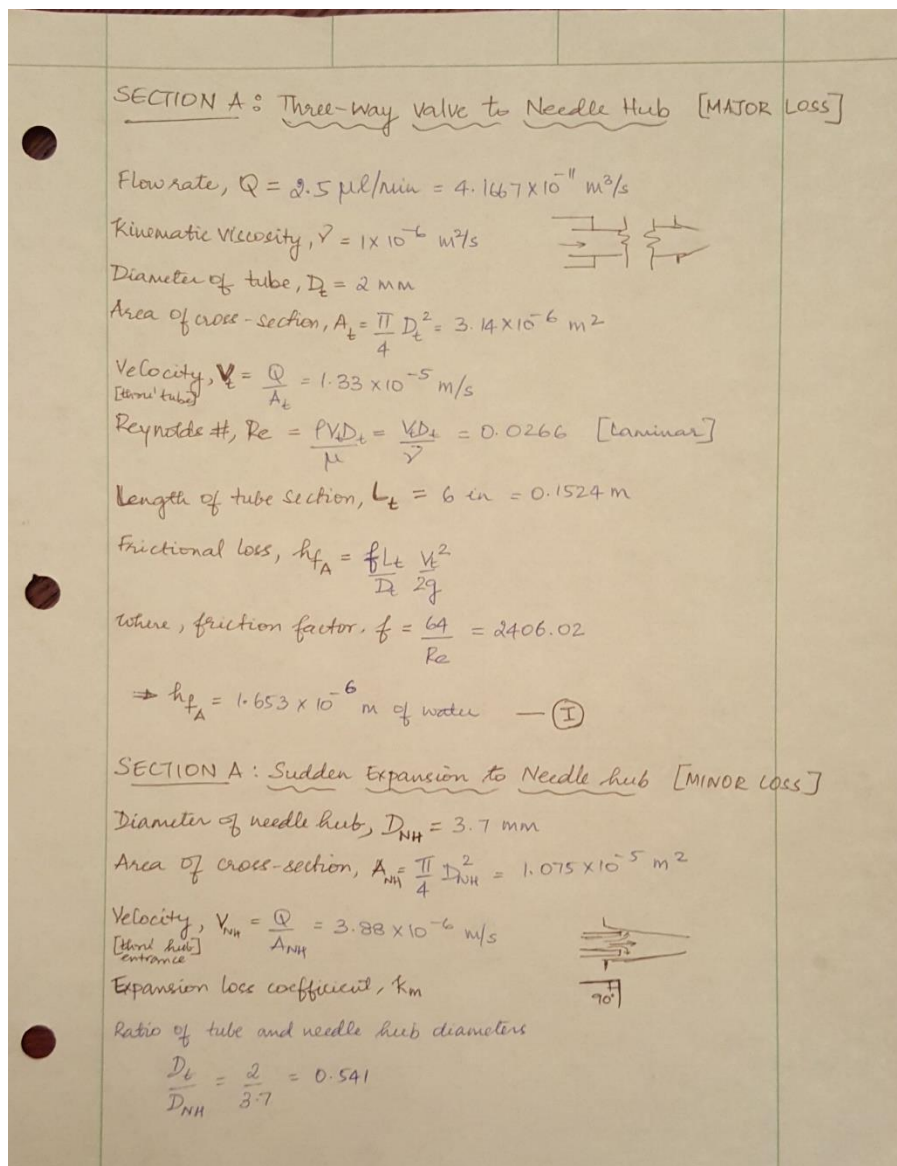 SECTION A: Three-way valve to Needle Hub [MAJOR LOSS]
Flow rate, Q = 2.5 μl/min = 4.1667 x 10⁻¹¹ m³/s
Kinematic Viscosity, ν = 1 x 10⁻⁶ m²/s
Diameter of tube, D_t = 2 mm
Area of cross-section, A_t = π/4 D_t² = 3.14 x 10⁻⁶ m²
Velocity, V_t = Q/A_t = 1.33 x 10⁻⁵ m/s
[thro' tube]
Reynolds #, Re = ρV_tD_t/μ = V_tD_t/ν = 0.0266 [Laminar]
Length of tube section, L_t = 6 in = 0.1524 m
Frictional loss, h_fA = fL_t/D_t V_t²/2g
where, friction factor, f = 64/Re = 2406.02
⇒ h_fA = 1.653 x 10⁻⁶ m of water — I
SECTION A: Sudden Expansion to Needle hub [MINOR LOSS]
Diameter of needle hub, D_NH = 3.7 mm
Area of cross-section, A_NH = π/4 D_NH² = 1.075 x 10⁻⁵ m²
Velocity, V_NH = Q/A_NH = 3.88 x 10⁻⁶ m/s
[thro' hub]
entrance
Expansion loss coefficient, K_m
90°
Ratio of tube and needle hub diameters
D_t/D_NH = 2/3.7 = 0.541